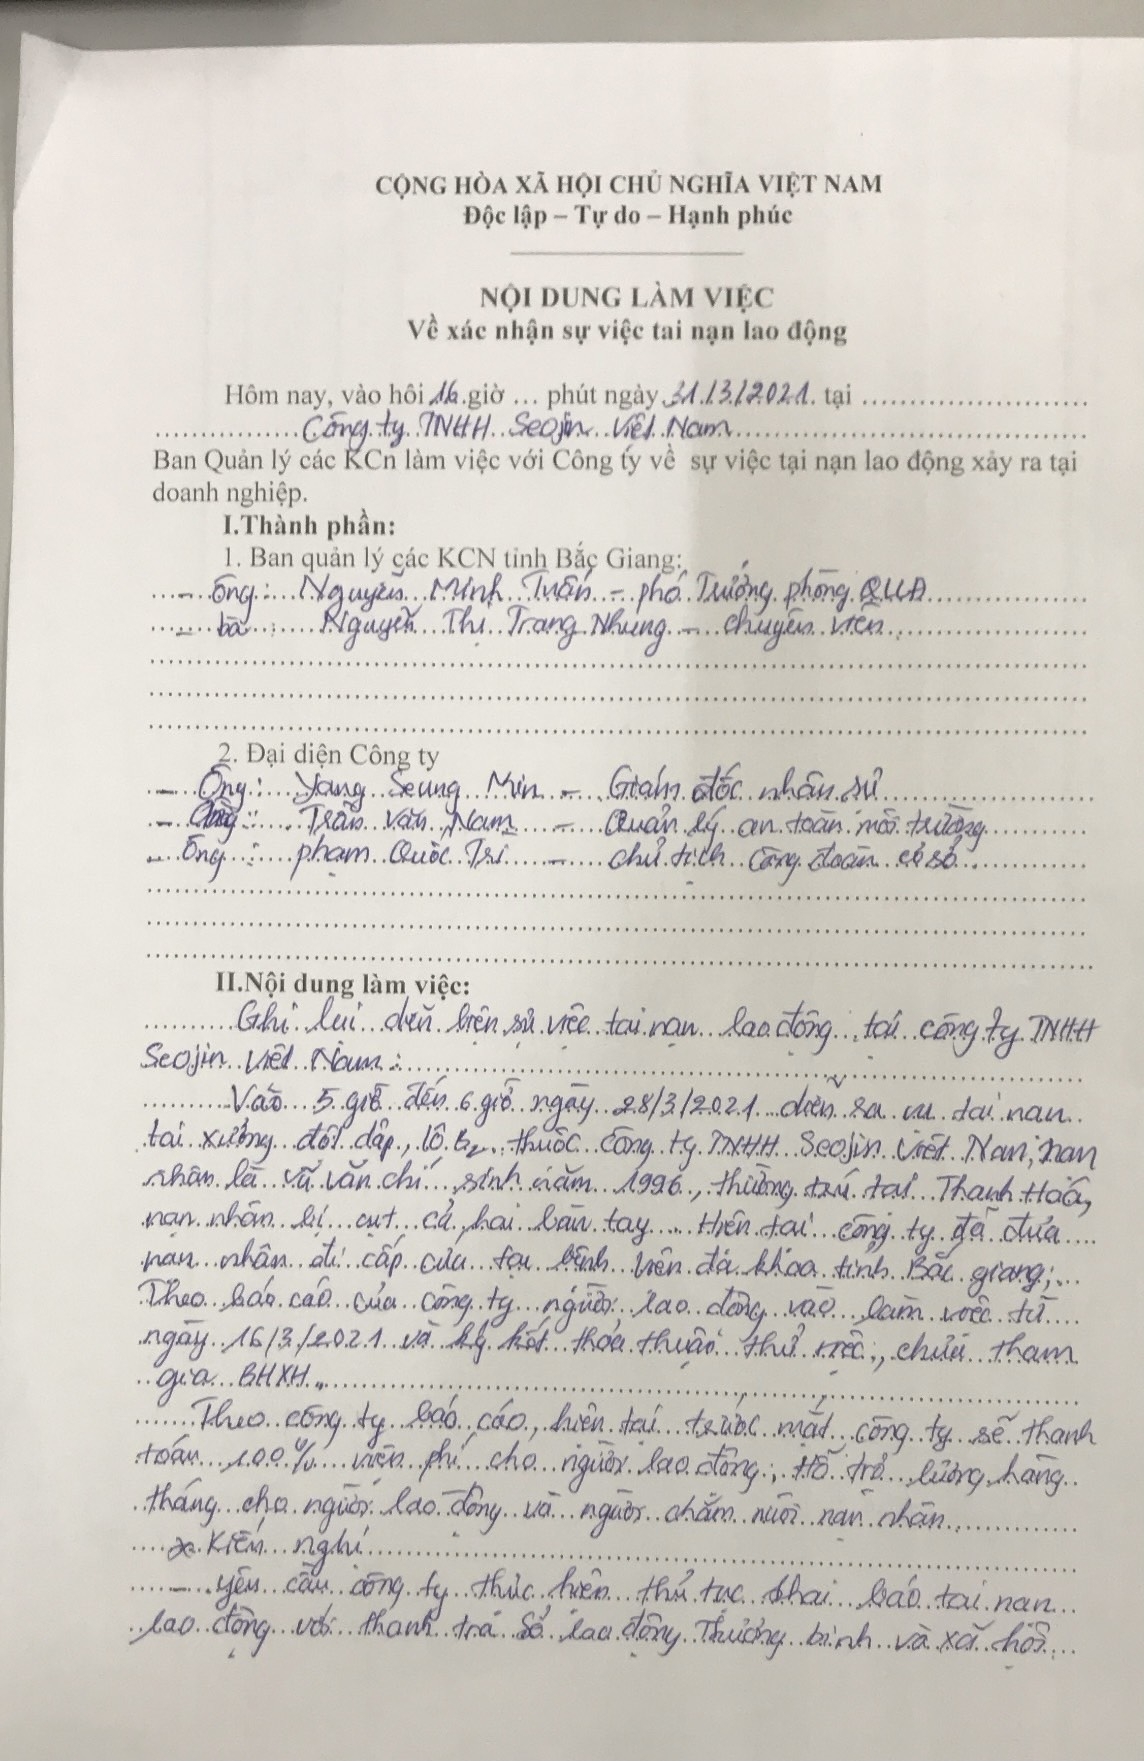 CỘNG HÒA XÃ HỘI CHỦ NGHĨA VIỆT NAM
Độc lập – Tự do – Hạnh phúc
NỘI DUNG LÀM VIỆC
Về xác nhận sự việc tai nạn lao động
Hôm nay, vào hồi 16 giờ ... phút ngày 31/3/2021 tại
Công ty TNHH Seojin Việt Nam
Ban Quản lý các KCn làm việc với Công ty về sự việc tại nạn lao động xảy ra tại
doanh nghiệp.
I.Thành phần:
1. Ban quản lý các KCN tỉnh Bắc Giang:
- Ông: Nguyễn Minh Tuấn - phó Trưởng phòng QLLĐ
- bà : Nguyễn Thị Trang Nhung - chuyên viên
2. Đại diện Công ty
- Ông: Yang Seung Min - Giám đốc nhân sự
- Ông: Trần Văn Nam - Quản lý an toàn môi trường
- Ông : phạm Quốc Trí - chủ tịch công đoàn cơ sở
II.Nội dung làm việc:
Ghi lại diễn biến sự việc tai nạn lao động tại công ty TNHH
Seojin Việt Nam:
Vào 5 giờ đến 6 giờ ngày 28/3/2021 diễn ra vụ tai nạn
tại xưởng đột dập, lô B2 thuộc công ty TNHH Seojin Việt Nam, nạn
nhân là Vũ Văn Chí, sinh năm 1996, thường trú tại Thanh Hoá,
nạn nhân bị cụt cả hai bàn tay. Hiện tại công ty đã đưa
nạn nhân đi cấp cứu tại bệnh viện đa khoa tỉnh Bắc giang;
Theo báo cáo của công ty người lao động vào làm việc từ
ngày 16/3/2021 và ký kết thỏa thuận thử việc, chưa tham
gia BHXH.
Theo công ty báo cáo, hiện tại trước mắt công ty sẽ thanh
toán 100% viện phí cho người lao động, Hỗ trợ lương hàng
tháng cho người lao động và người chăm nuôi nạn nhân.
* Kiến nghị
- yêu cầu công ty thực hiện thủ tục khai báo tai nạn
lao động với thanh tra Sở lao động Thương binh và xã hội